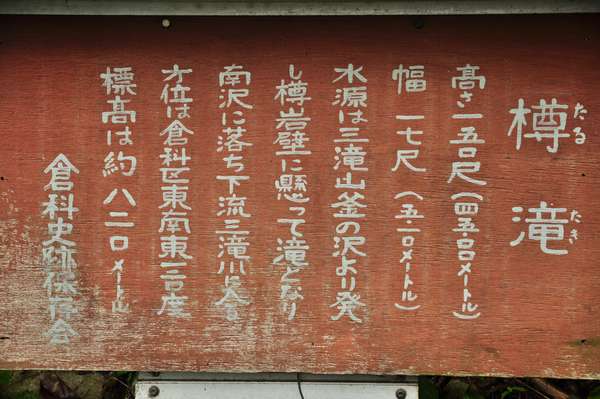 樽滝
たる
たき
高さ一五〇尺(四五・五〇メートル)
幅 一七尺(五・一〇メートル)
水源は三滝山釜の沢より発
し樽岩壁に懸って滝となり
南沢に落ち下流三滝川に入る
方位は倉科区東南東一二〇度
標高は約八二〇メートル
倉科史跡保存会